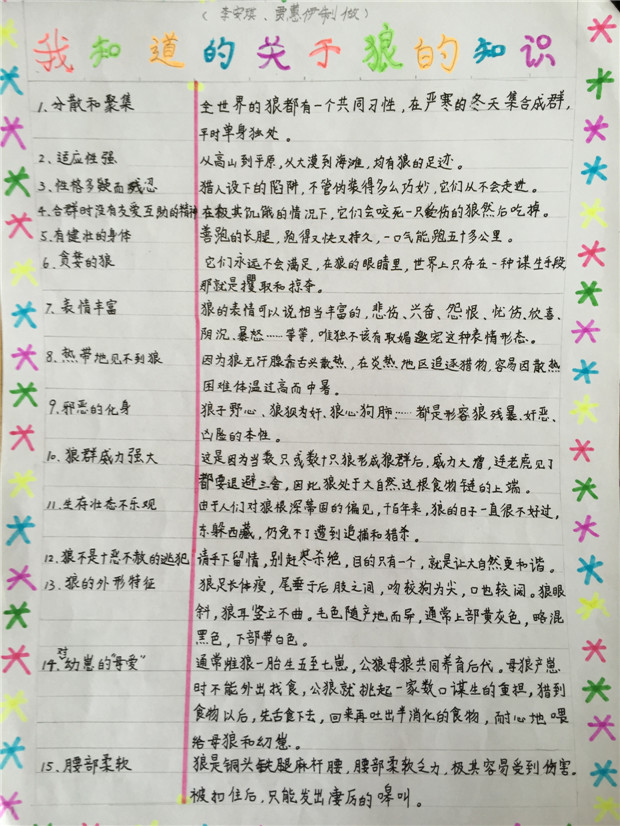 (李安琪、贾慧伊制做)
我知道的关于狼的知识
1.分散和聚集 全世界的狼都有一个共同习性,在严寒的冬天集合成群,
平时单身独处。
2.适应性强 从高山到平原,从大漠到海滩,均有狼的足迹。
3.性格多疑而残忍 猎人设下的陷阱,不管伪装得多么巧妙,它们从不会走进。
4.合群时没有友爱互助的精神 在极其饥饿的情况下,它们会咬死一只受伤的狼然后吃掉。
5.有健壮的身体 善跑的长腿,跑得又快又持久,一口气能跑五十多公里。
6.贪婪的狼 它们永远不会满足,在狼的眼睛里,世界上只存在一种谋生手段,
那就是攫取和掠夺。
7.表情丰富 狼的表情可以说相当丰富的,悲伤、兴奋、怨恨、忧伤、欣喜、
阴沉、暴怒……等等,唯独不该有取媚邀宠这种表情形态。
8.热带地见不到狼 因为狼无汗腺靠舌头散热,在炎热地区追逐猎物,容易因散热
困难体温过高而中暑。
9.邪恶的化身 狼子野心、狼狈为奸、狼心狗肺……都是形容狼残暴、奸恶、
凶险的本性。
10.狼群威力强大 这是因为当数只或数十只狼形成狼群后,威力大增,连老虎见了
都要退避三舍,因此狼处于大自然这根食物链的上端。
11.生存壮态不乐观 由于人们对狼根深蒂固的偏见,千百年来,狼的日子一直很不好过,
东躲西藏,仍免不了遭到追捕和猎杀。
12.狼不是十恶不赦的逃犯 请手下留情,别赶尽杀绝,目的只有一个,就是让大自然更和谐。
13.狼的外形特征 狼足长体瘦,尾垂于后肢之间,吻较狗为尖,口也较阔。狼眼
斜,狼耳竖立不曲。毛色随产地而异,通常上部黄灰色,略混
黑色,下部带白色。
14.对幼崽的"母爱" 通常雌狼一胎生五至七崽,公狼母狼共同养育后代。母狼产崽
时不能外出找食,公狼就挑起一家数口谋生的重担,猎到
食物以后,先吞食下去,回来再吐出半消化的食物,耐心地喂
给母狼和幼崽。
15.腰部柔软 狼是铜头铁腿麻杆腰,腰部柔软乏力,极其容易受到伤害。
被扣住后,只能发出凄厉的嗥叫。